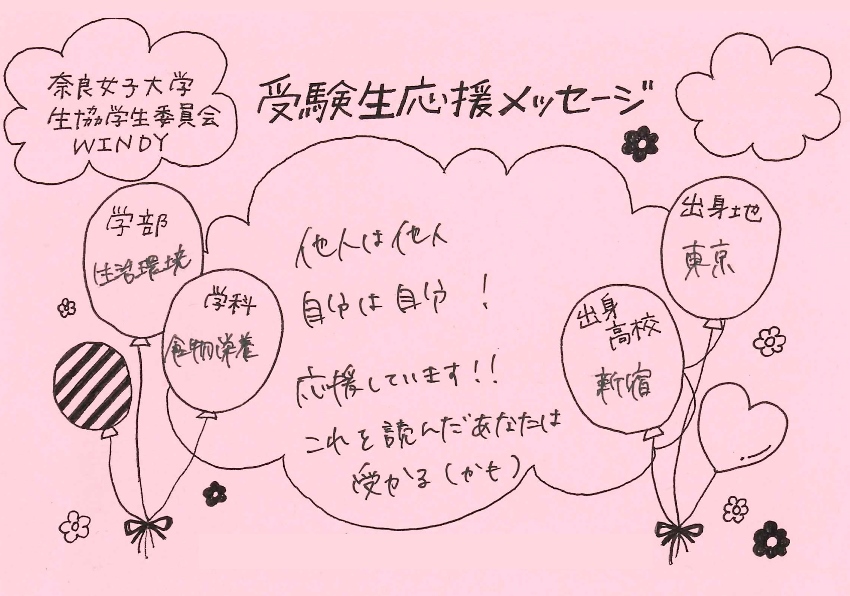 奈良女子大学
生協学生委員会
WINDY
受験生応援メッセージ
学部
生活環境
学科
食物栄養
他人は他人
自分は自分!
応援しています!!
これを読んだあなたは
受かる(かも)
出身地
東京
出身
高校
新宿